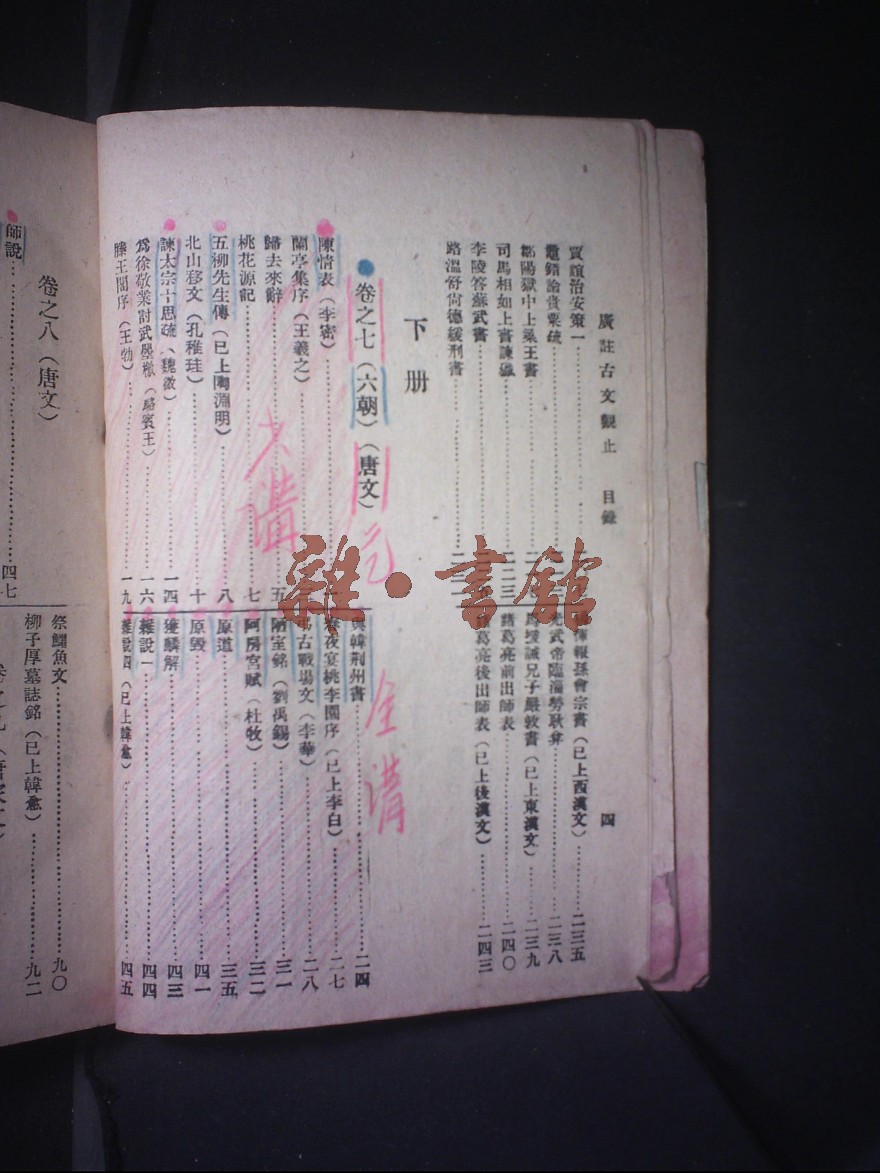 廣註古文觀止　目錄　四
賈誼治安策一
鼂錯論貴粟疏
鄒陽獄中上梁王書
司馬相如上書諫獵　二二三
李陵答蘇武書
路溫舒尚德緩刑書
報孫會宗書（已上西漢文）二三五
光武帝臨淄勞耿弇　二三八
馬援誡兄子嚴敦書（已上東漢文）二三九
諸葛亮前出師表　二四〇
諸葛亮後出師表（已上後漢文）二四三
下册
卷之七（六朝）（唐文）
陳情表（李密）
蘭亭集序（王羲之）
歸去來辭　五
桃花源記　七
五柳先生傳（已上陶淵明）八
北山移文（孔稚珪）十
諫太宗十思疏（魏徵）一四
為徐敬業討武曌檄（駱賓王）一六
滕王閣序（王勃）一九
與韓荊州書　二四
春夜宴桃李園序（已上李白）二七
弔古戰場文（李華）二八
陋室銘（劉禹錫）三一
阿房宮賦（杜牧）三二
原道　三五
原毀　四一
獲麟解　四三
雜說一　四四
雜說四（已上韓愈）四五
大講
全講
雜·書館
卷之八（唐文）
師說　四七
祭鱷魚文　九〇
柳子厚墓誌銘（已上韓愈）九二